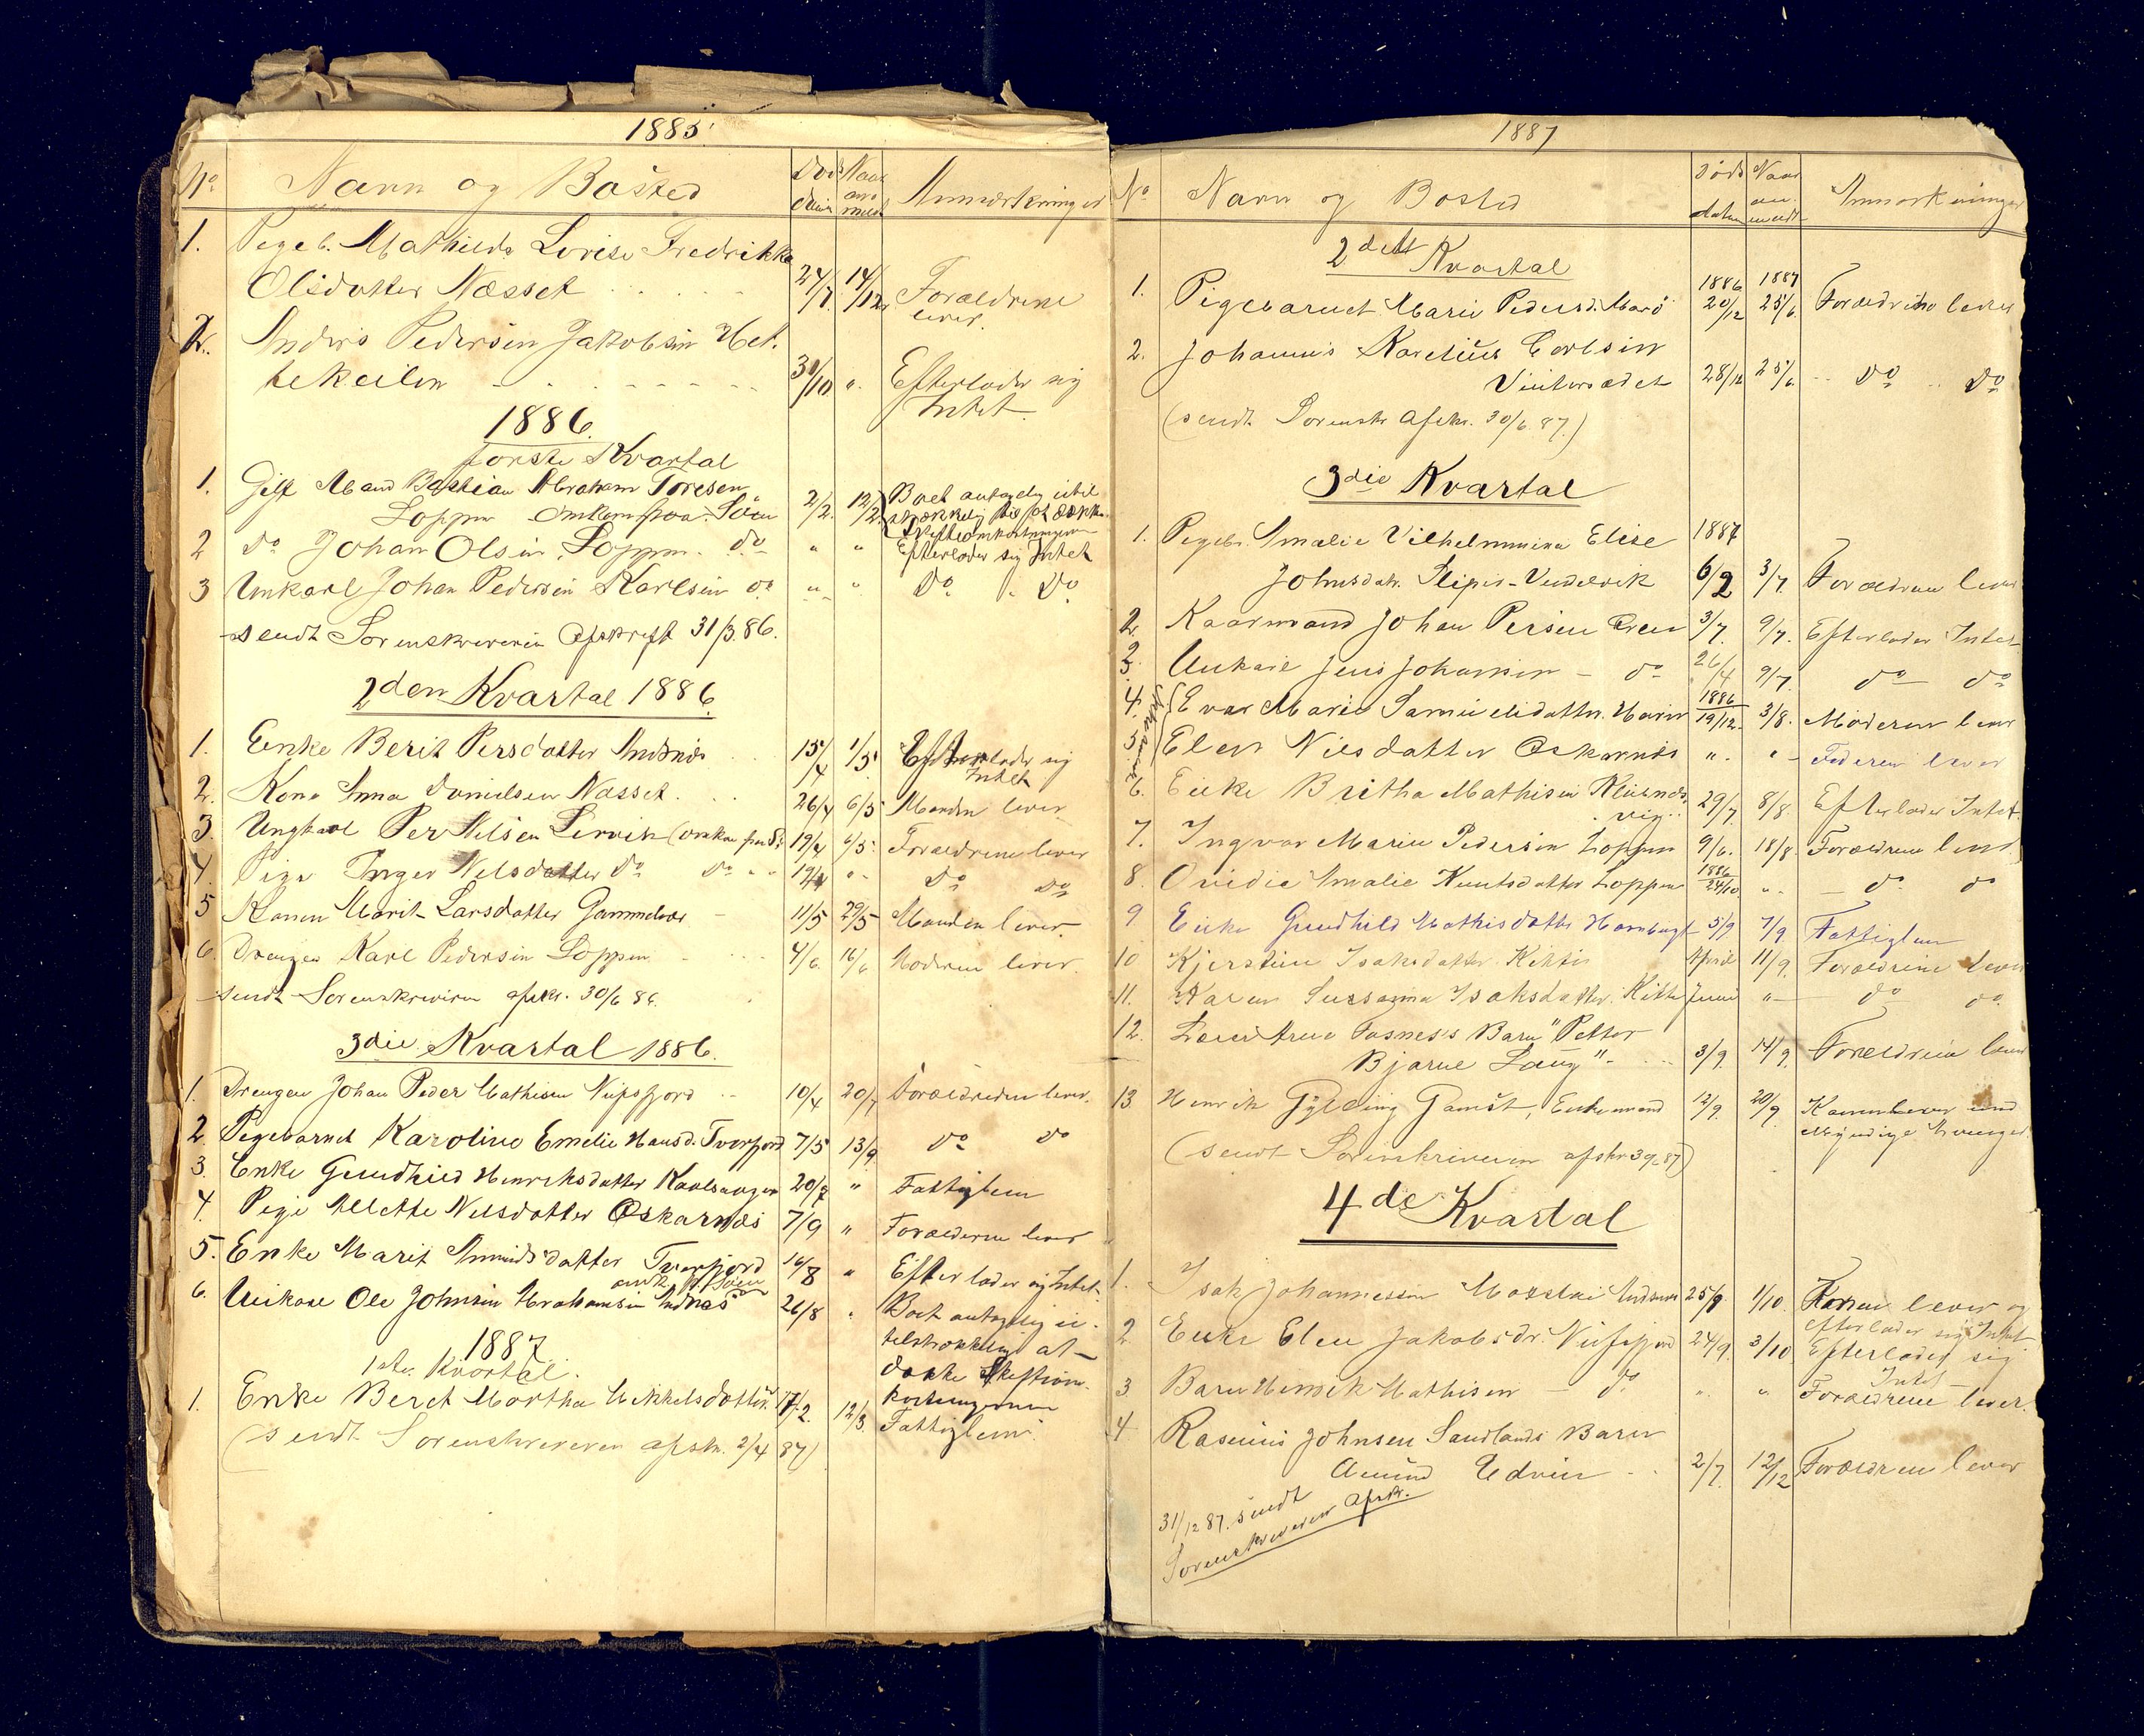 1885
No Navn og Bosted Døds datum Naar anmeldt Anmærkninger
1. Pigeb. Mathilde Lovise Fredrikke
Olsdatter Næsset 24/7 14/12 Forældrene
lever.
2. Anders Pedersen Jakobsen Het.
tekeilen 30/10 " Efterlader sig
Intet.
1886.
første Kvartal
1. Gift Mand Bastian Abraham Toresen
Loppen Omkom paa Søen 2/2. 12/2. Boet antagelig utilstrækkelig til at dække Skifteomkostningerne
2 do Johan Olsen Loppen. do " " Efterlader sig Intet
3 Unkarl Johan Pedersen Karlsen do " " do do
sendt Sorenskriveren Afskrift 31/3.86.
2den Kvartal 1886.
1. Enke Berit Persdatter Andsnes 15/4 1/5 Efterlader sig
Intet
2. Kona Anna Danielsen Næsset. 26/4 6/5 Manden lever.
3. Ungkarl Per Nilsen Lervik (omkom paa S. 19/4 6/5. Forældrene lever
4. Pige Inger Nilsdatter do do 19/4 " do do
5 Konen Marit Larsdatter Gammelvær 11/5 29/5 Manden lever.
6. Drengen Karl Pedersen Loppen 4/6. 16/6 Moderen lever.
sendt Sorenskriveren afskr. 30/6 86.
3die Kvartal 1886.
1. Drengen Johan Peder Mathisen Nufsfjord 10/4 20/7 Forældrene lever.
2. Pigebarnet Karoline Emelie Hansd. Tverfjord 7/5 13/9 do do
3. Enke Gundhild Henriksdatter Kvalsaugen 20/7 " Fattiglem
4. Pige Mette Nilsdatter Oskarnes 7/9 " Forældrene lever
5. Enke Marit Amundsdatter Tverfjord 16/8 " Efterlader sig Intet.
6. Unkarl Ole Johnsen Abrahamsen Andnes omk. p. Søen 26/8 " Boet antagelig u-
tilstrækkelig at
dække Skifteom-
kostningerne
1887
1ste. Kvartal.
1. Enke Beret Martha Mikkelsdatter 17/2. 12/3. Fattiglem.
(sendt Sorenskriveren afskr. 2/4 87)
1887
No Navn og Bosted Døds datum Naar anmeldt Anmærkninger
2det Kvartal
1. Pigebarnet Marie Pedersd. Marø 1886 20/12 1887 25/6. Forældrene lever
2. Johannes Karelius Carlsen
Vintersædet 28/12 25/6 do do
(sendt Sorenskr. Afskr. 30/6 87.)
3die Kvartal
1. Pigeb. Amalie Vilhelmmine Elise 1887
Johnsdatr. Slipes-Vendelvik 6/2 3/7. Forældrene lever
2. Kaarmand Johan Persen Øren 3/7. 9/7. Efterlader Intet
3. Unkarl Jens Johansen - do 26/4 9/7. do do
4. Evar Marie Samuelsdatter. 1886 19/12. 3/8. Moderen lever
5. Elen Nilsdatter Oskarnes " " Faderen lever
6. Enke Britha Mathisen
vig.. 29/7 8/8. Efterlader Intet.
7. Ingvar Marius Pedersen Loppen 9/6. 18/8. Forældrene lever
8. Ovidie Amalie Knutsdatter Loppen 1886 24/10 " do do
9 Enke Gundhild Mathisdatter Hornbugt 5/9 7/9. Fattiglem
10 Kjerstine Isaksdatter Kitti April 11/9. Forældrene lever
11. Karen Sussanna Isaksdatter. Kitti Juni " do do
12. Lensm. Arne Fosness's Barn "Petter
Bjarne Lang" 3/9. 14/9. Forældrene lever
13 Henrik Gylding Gamst, Enkemand 12/9. 20/9. Konen lever med
Myndige Arvinger.
(sendt Sorenskriveren afskr 30/9 87)
4de Kvartal
1. Isak Johannessen Andsnes 25/9 1/10. Konen lever og
efterlader sig Intet
2 Enke Elen Jakobsdr. Nufsfjord 24/9. 3/10 Efterlader sig
Intet
3 Barn Henrik Mathisen - do " " Forældrene lever.
4 Rasmus Johnsen Sandlands Barn
Amund Edvin 2/7. 12/12 Forældrene lever
31/12 87. sendt
Sorenskriveren Afskr.